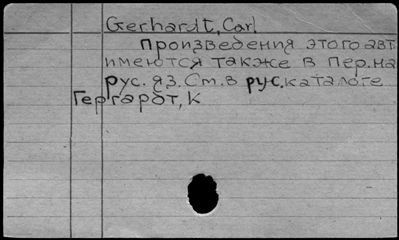 Gerhardt, Carl
Произведения этого авт.
имеются также в пер. на
рус. яз. См. в рус. каталоге
Гергардт, К